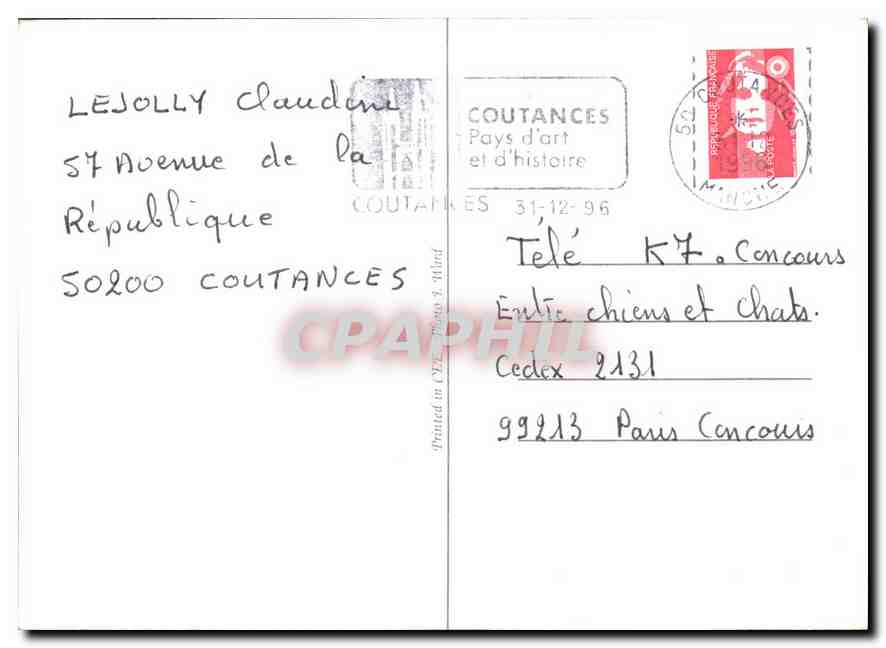 LEJOLLY Claudine
57 Avenue de la
République
50200 COUTANCES
COUTANCES
Pays d'art
et d'histoire
COUTANCES 31-12-96
RÉPUBLIQUE FRANÇAISE
LA POSTE
50 COUTANCES
1996
MANCHE
Télé K7. Concours
Entre chiens et Chats.
Cedex 2131
99213 Paris Concours
Printed in CEE - Photo J. Ward
CPAPHIL